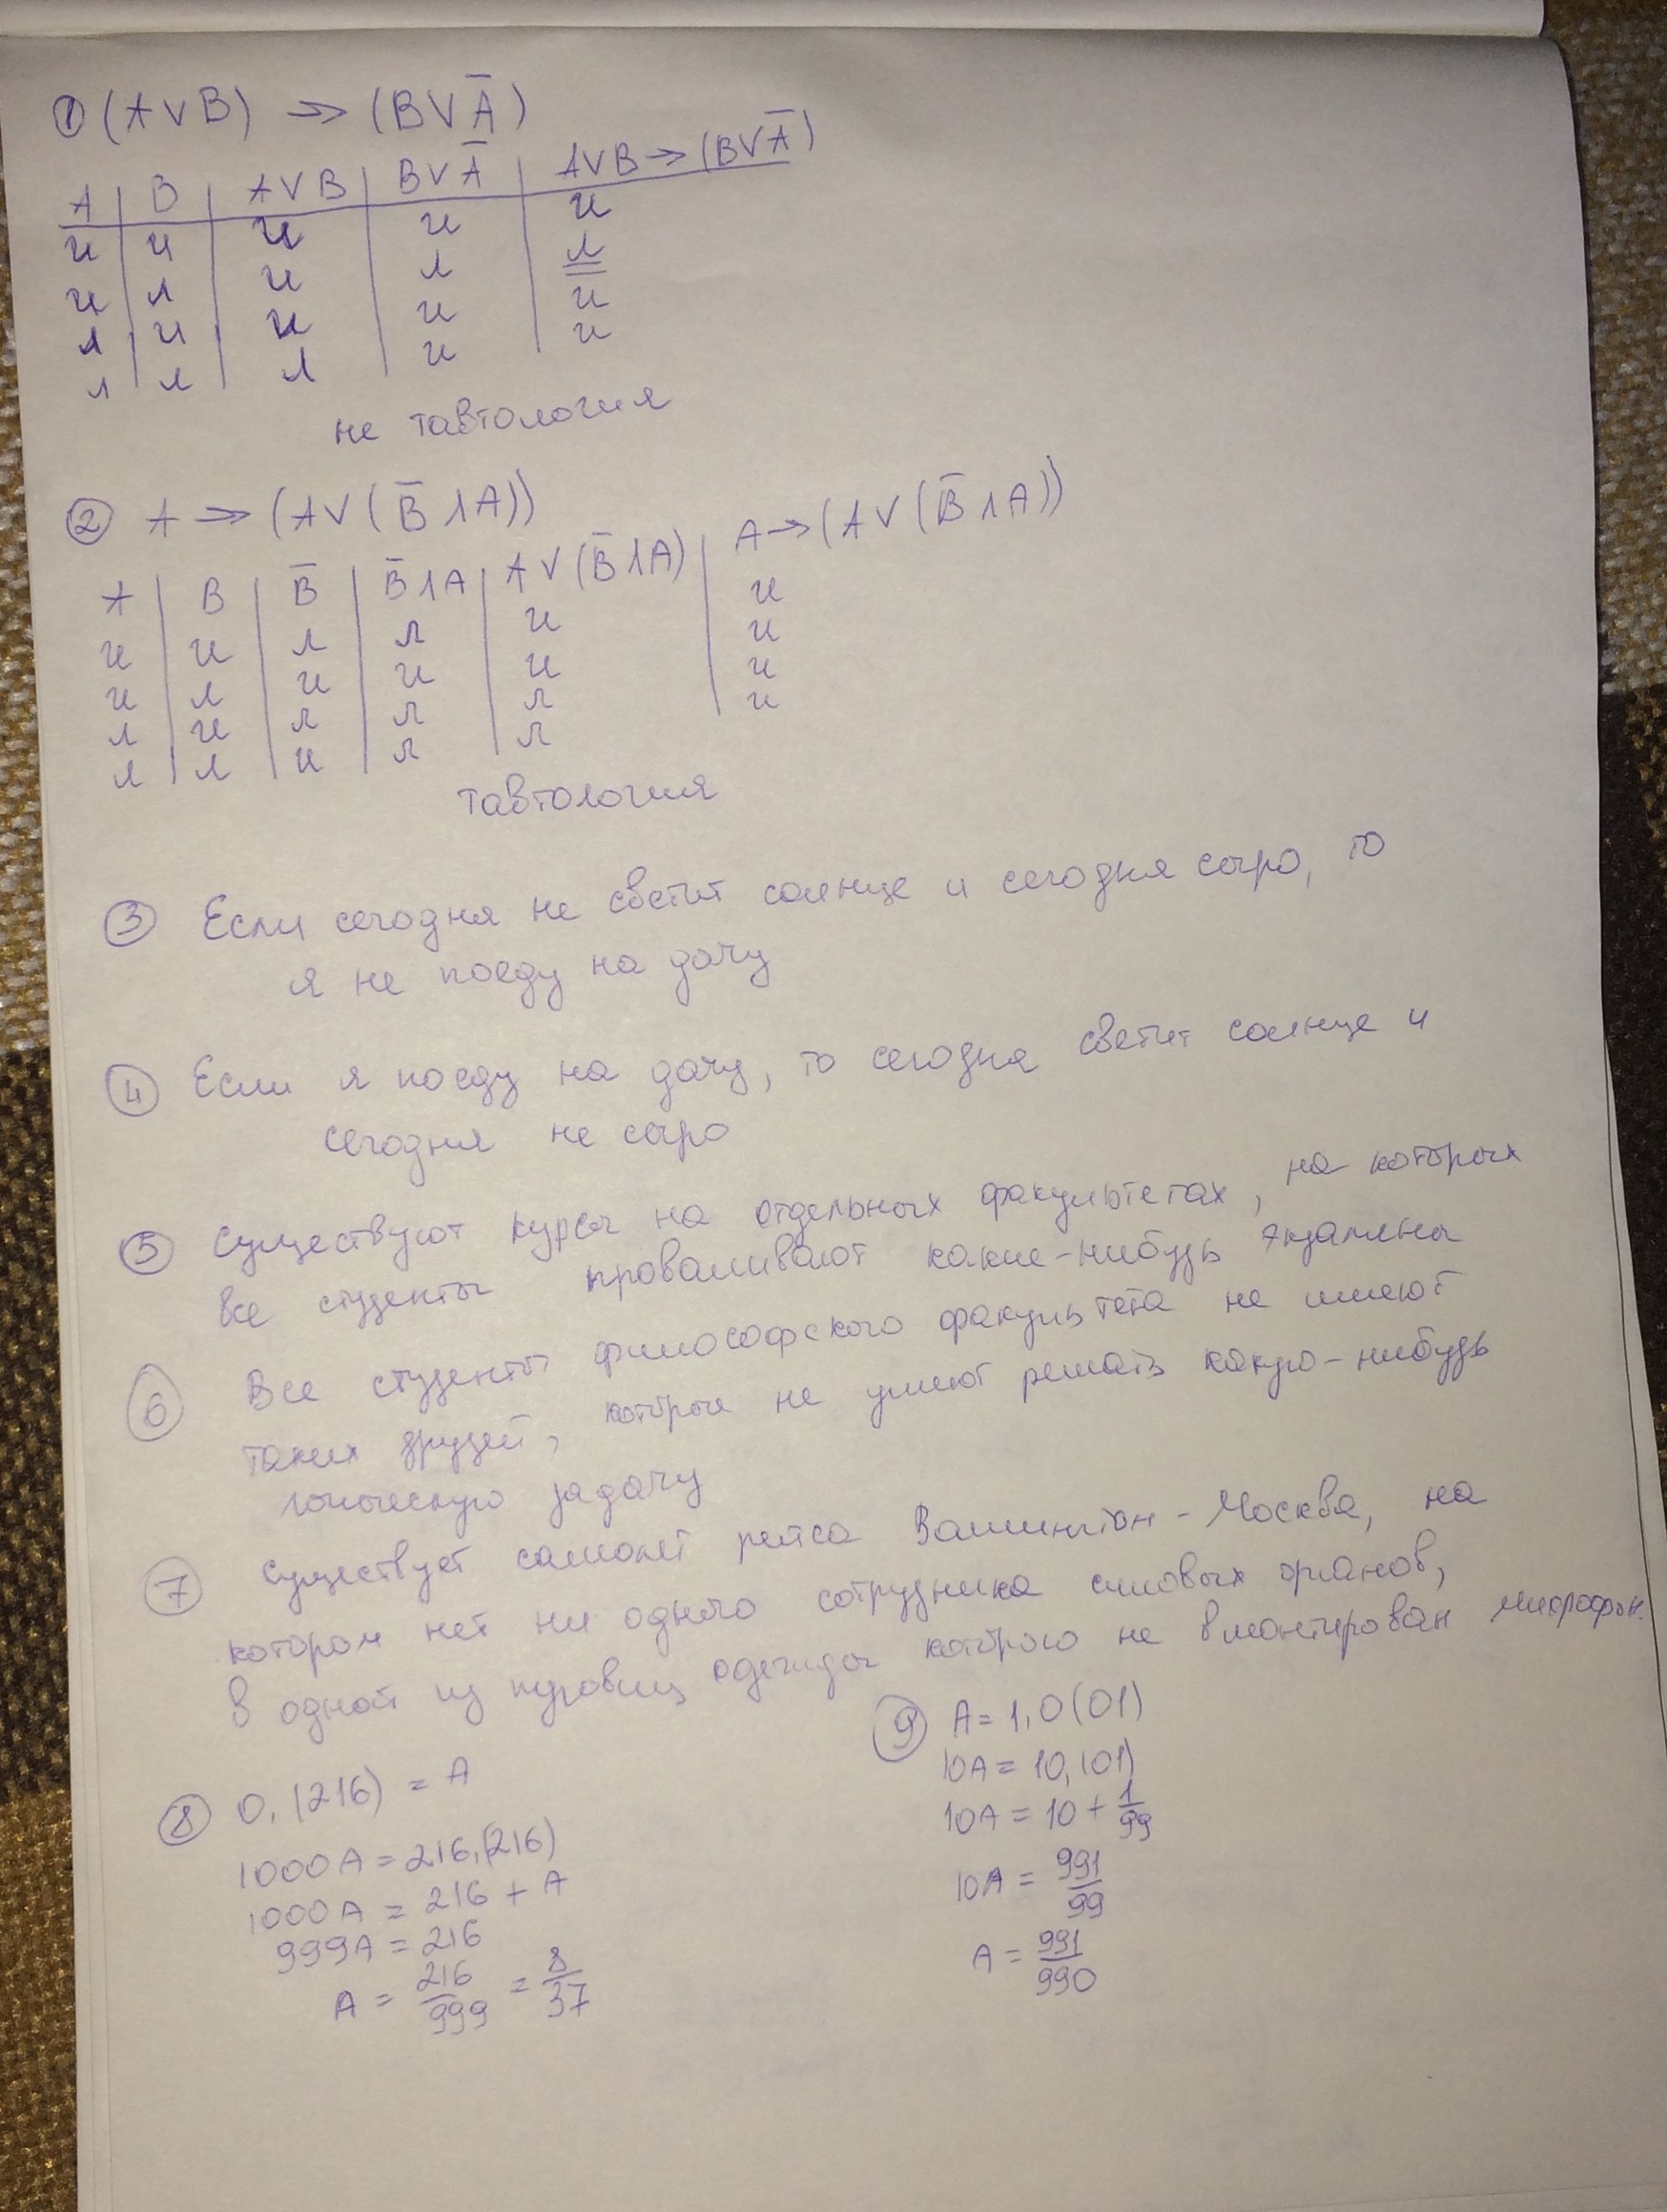 ① (A∨B) → (B∨Ā)
A | B | A∨B | B∨Ā | A∨B → (B∨Ā)
и | и | и | и | и
и | л | и | л | л
л | и | и | и | и
л | л | л | и | и
не тавтология
② A → (A∨(B̄∧A))
A | B | B̄ | B̄∧A | A∨(B̄∧A) | A → (A∨(B̄∧A))
и | и | л | л | и | и
и | л | и | и | и | и
л | и | л | л | л | и
л | л | и | л | л | и
тавтология
③ Если сегодня не светит солнце и сегодня сыро, то
я не поеду на дачу
④ Если я поеду на дачу, то сегодня светит солнце и
сегодня не сыро
⑤ Существуют курсы на отдельных факультетах, на которых
все студенты проваливают какие-нибудь экзамены
⑥ Все студенты философского факультета не имеют
таких друзей, которые не умеют решать какую-нибудь
логическую задачу
⑦ Существует самолёт рейса Вашингтон-Москва, на
котором нет ни одного сотрудника силовых органов,
в одной из пуговиц одежды которого не вмонтирован микрофон.
⑧ 0,(216) = A
1000A = 216,(216)
1000A = 216 + A
999A = 216
A = 216/999 = 8/37
⑨ A = 1,0(01)
10A = 10,(01)
10A = 10 + 1/99
10A = 991/99
A = 991/990